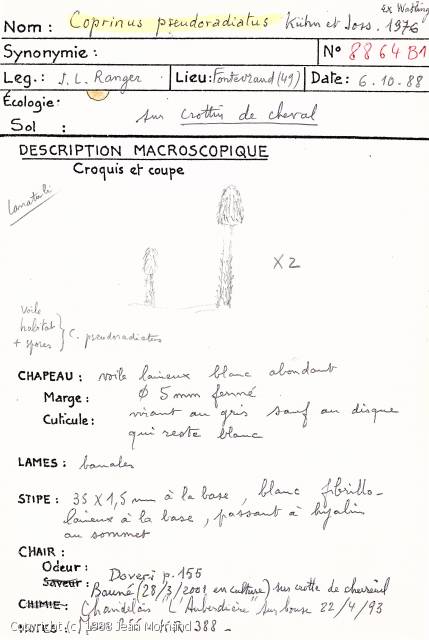 ex Watling
Nom : Coprinus pseudoradiatus Kühn et Joss. 1976
Synonymie :
N° 8864 B1
Leg. : J. L. Ranger
Lieu : Fontevraud (49)
Date : 6.10.88
Écologie :
Sol :
sur crottin de cheval
DESCRIPTION MACROSCOPIQUE
Croquis et coupe
Lanatuli
X 2
voile
habitat
+ spores
C. pseudoradiatus
CHAPEAU : voile laineux blanc abondant
Marge : Ø 5 mm fermé
Cuticule : virant au gris sauf au disque
qui reste blanc
LAMES : banales
STIPE : 35 X 1,5 mm à la base, blanc fibrillo-
laineux à la base, passant à hyalin
au sommet
CHAIR :
Odeur :
Doveri p. 155
Saveur : Bauné (28/3/2001 en culture) sur crotte de chevreuil
CHIMIE : Chandelais "L'Auberdière" sur bouse 22/4/93
Copyright (c) 1988 Jean Mornand
NOTES : 388